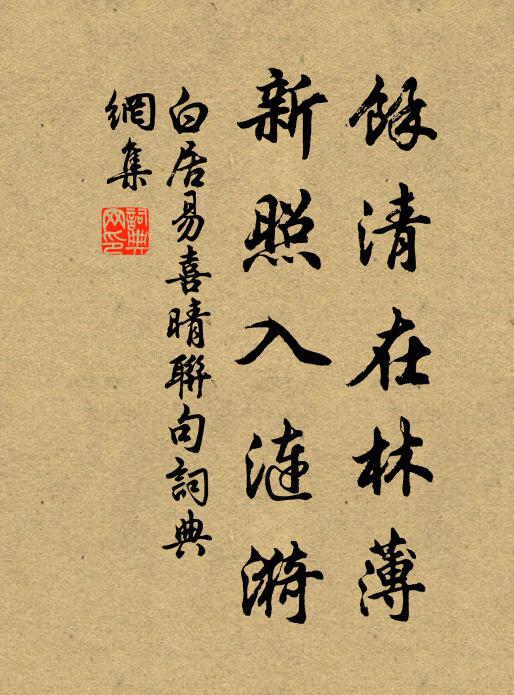 餘清在林薄
新照入漣漪
白居易喜晴聯句詞典
網集
詞典
网印